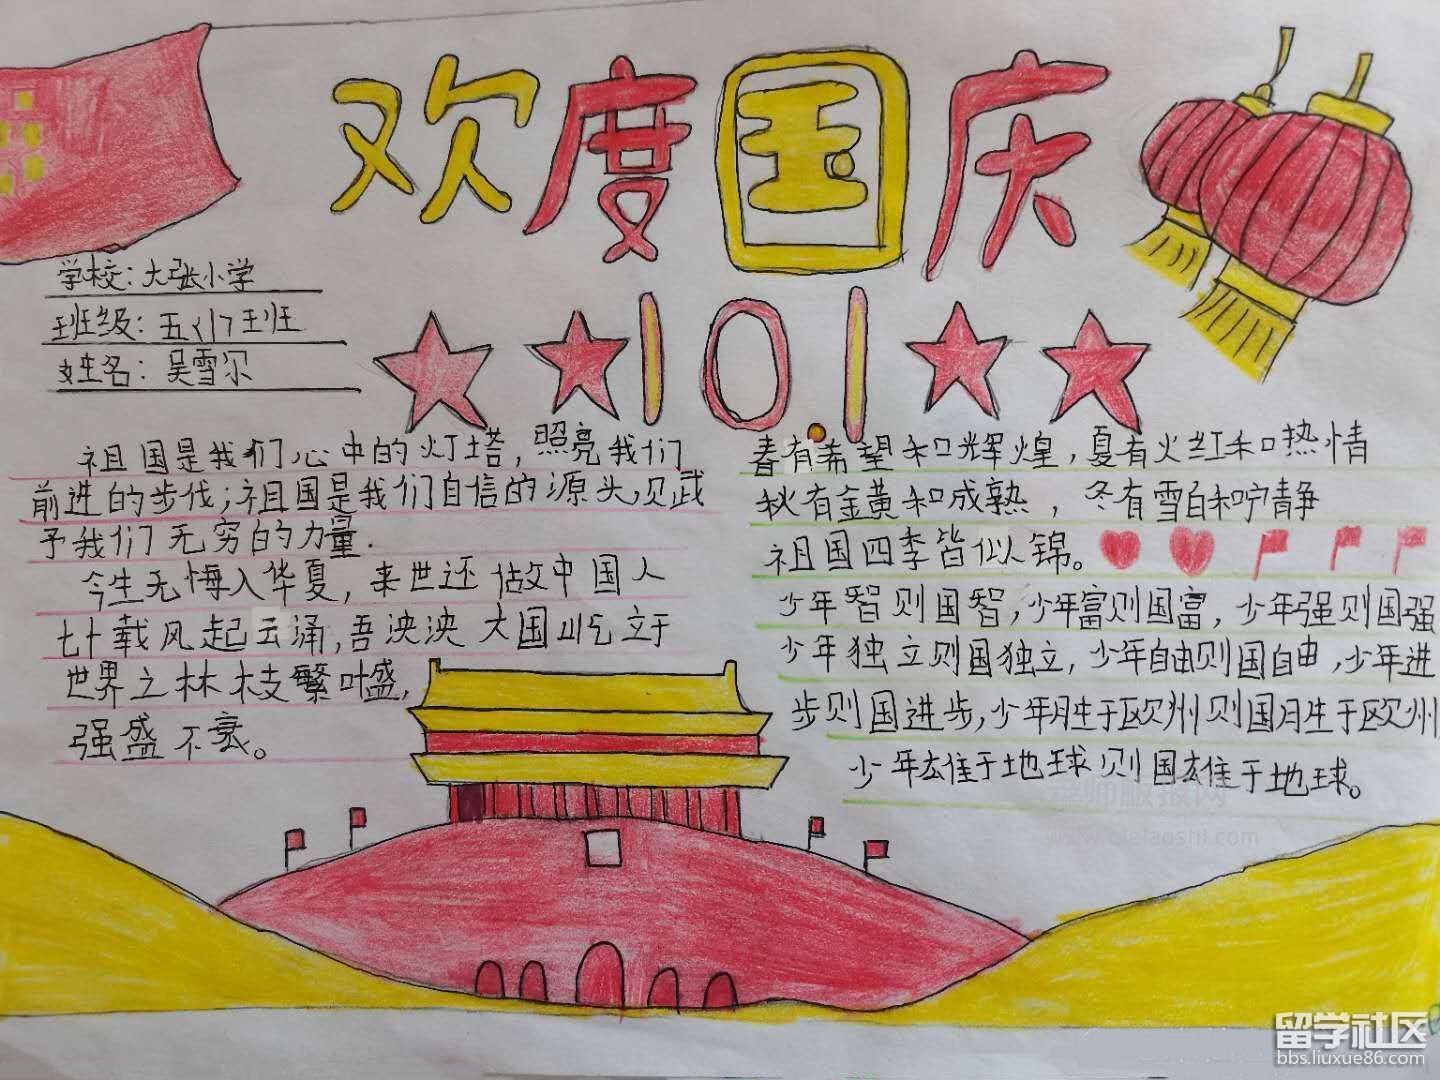 欢度国庆
10.1
学校：大张小学
班级：五(1)班
姓名：吴雪尔
祖国是我们心中的灯塔，照亮我们
前进的步伐；祖国是我们自信的源头，贝武
予我们无穷的力量.
今生无悔入华夏，来世还做中国人
七十载风起云涌，吾泱泱大国屹立于
世界之林枝繁叶盛，
强盛不衰。
春有希望和辉煌，夏有火红和热情
秋有金黄和成熟，冬有雪白和宁静
祖国四季皆似锦。
少年智则国智，少年富则国富，少年强则国强
少年独立则国独立，少年自由则国自由，少年进
步则国进步，少年胜于欧州则国胜于欧州
少年雄于地球则国雄于地球。
老师板报网
留学社区
bbs.liuxue86.com